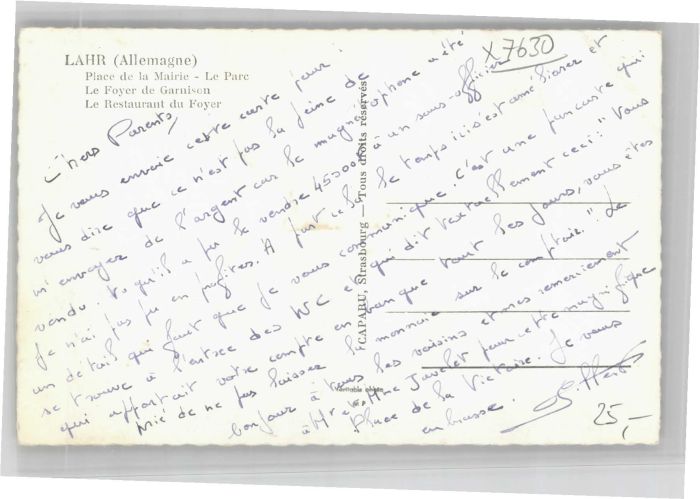 LAHR (Allemagne)
Place de la Mairie - Le Parc
Le Foyer de Garnison
Le Restaurant du Foyer
X7630
Chers Parents,
Je vous envoie cette carte pour
vous dire que ce n'est pas la peine de
m'envoyer de l'argent car le magnétophone a été
vendu. vu qu'il a pu le vendre 45000 à un sous-officier
Je n'ai pas pu en profiter. A part cela le temps ici s'est amélioré et
un détail qu'il faut que je vous communique. C'est une pancarte qui
se trouve à l'entrée des WC et qui dit textuellement ceci: "Vous
qui apportait votre compte en banque tout les jours, vous êtes
prié de ne pas laisser la monnaie sur le comptoir." Le
bonjour à tous les voisins et mes remerciement
à Mr et Mme Javelet pour cette magnifique
Place de la Victoire. Je vous
embrasse.
CAPARU, Strasbourg — Tous droits réservés
Véritable photo
25,-